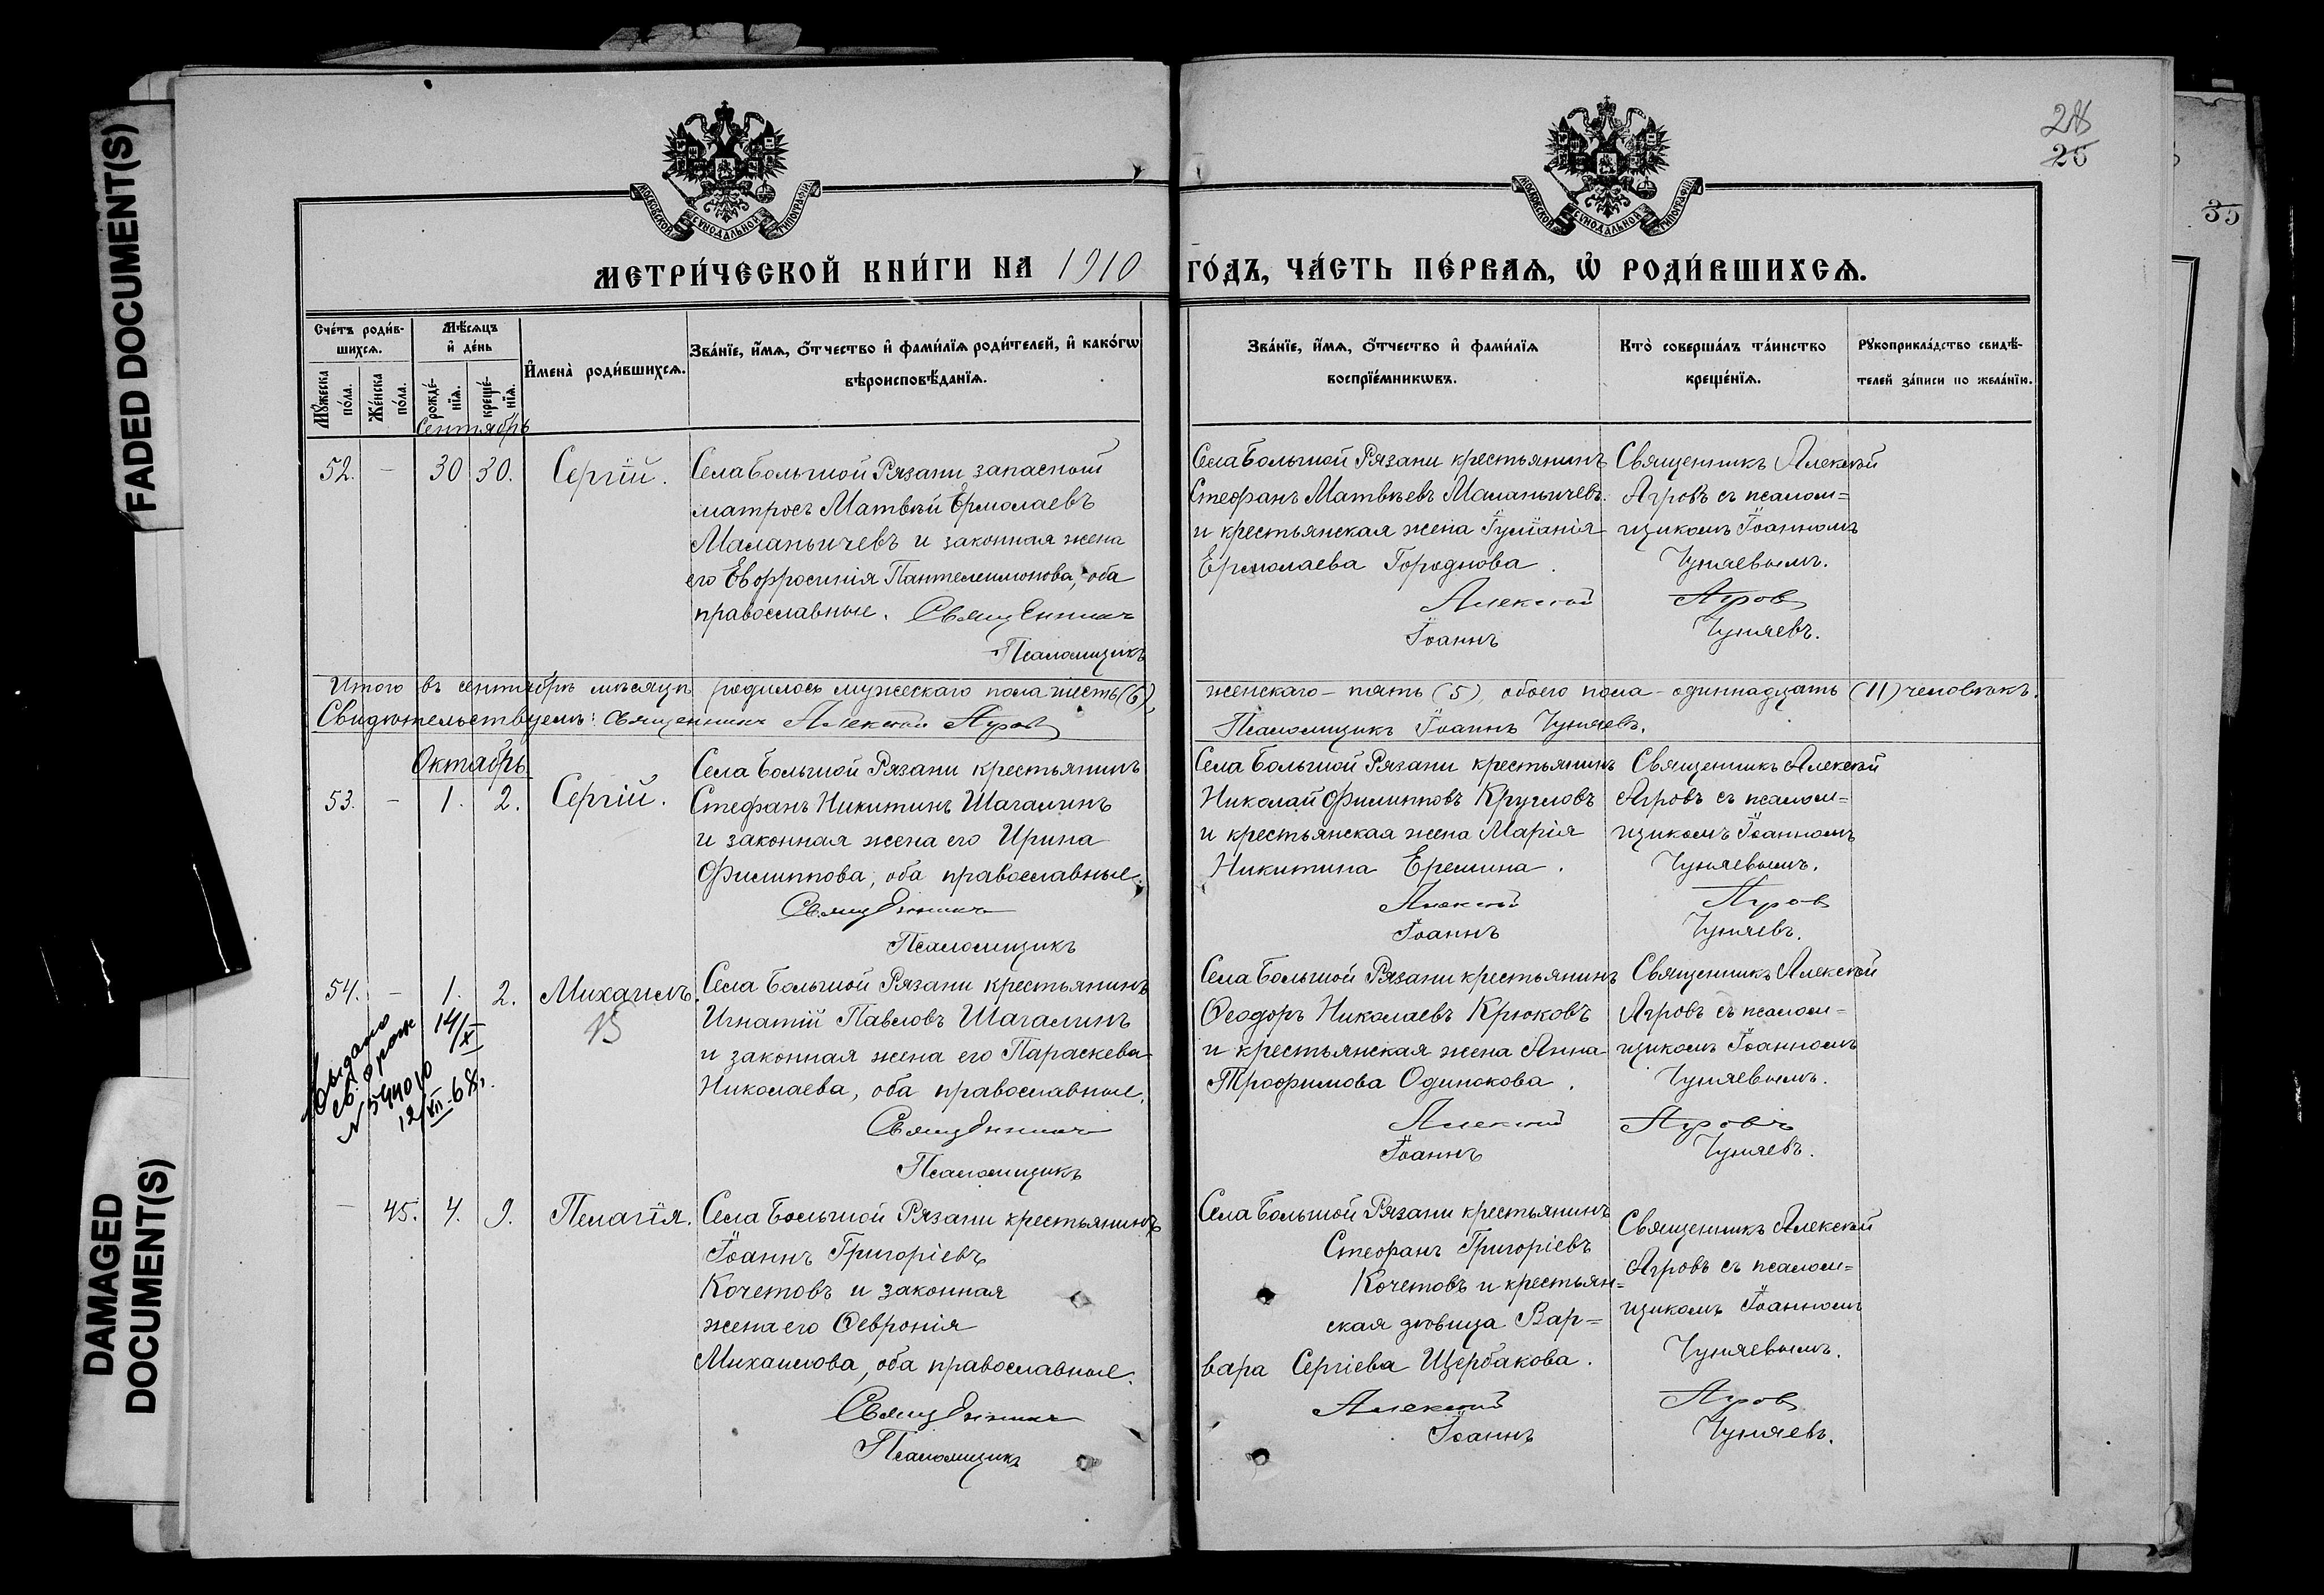 FADED DOCUMENT(S)
DAMAGED DOCUMENT(S)
28
26
35
МОСКОВСКОЙ СУНОДАЛЬНОЙ ТИПОГРАФІИ
МОСКОВСКОЙ СУНОДАЛЬНОЙ ТИПОГРАФІИ
МЕТРИ́ЧЕСКОЙ КНИ́ГИ НА 1910 ГО́ДЪ, ЧА́СТЬ ПЕ́РВАѦ, Ѡ РОДИ́ВШИХСѦ.
Сче́тъ роди́в-
шихсѧ.
Мꙋжеска по́ла.
Же́нска по́ла.
Мѣ́сѧцъ
и де́нь
рожде́-
нїѧ.
креще́-
нїѧ.
Имена̀ роди́вшихсѧ.
Зва́нїе, и́мѧ, о́тчество и фами́лїѧ роди́телей, и како́гѡ
вѣроисповѣ́данїѧ.
Зва́нїе, и́мѧ, о́тчество и фами́лїѧ
воспрїе́мникѡвъ.
Кто̀ соверша́лъ та́инство
креще́нїѧ.
Рꙋкоприкла́дство свидѣ́-
телей за́писи по жела́нїю.
Сентябрь
52. - 30 30. Сергій.
Села Большой Рязани запасной
матросъ Матвѣй Ермолаевъ
Маланьичевъ и законная жена
его Евфросинія Пантелеимонова, оба
православные. Священникъ
Псаломщикъ
Села Большой Рязани крестьянинъ
Стефанъ Матвѣевъ Маланьичевъ
и крестьянская жена Іуліанія
Ермолаева Городнова.
Алексѣй
Іоаннъ
Священникъ Алексѣй
Агровъ съ псалом=
щикомъ Іоанномъ
Чуняевымъ.
Агровъ
Чуняевъ.
Итого въ сентябрѣ мѣсяцѣ родилось мужескаго пола шесть (6), женскаго - пять (5), обоего пола - одиннадцать (11) человѣкъ.
Свидѣтельствуемъ: Священникъ Алексѣй Агровъ
Псаломщикъ Іоаннъ Чуняевъ.
Октябрь
53. - 1. 2. Сергій.
Села Большой Рязани крестьянинъ
Стефанъ Никитинъ Шагалинъ
и законная жена его Ирина
Филиппова, оба православные.
Священникъ
Псаломщикъ
Села Большой Рязани крестьянинъ
Николай Филипповъ Кругловъ
и крестьянская жена Марія
Никитина Еремина.
Алексѣй
Іоаннъ
Священникъ Алексѣй
Агровъ съ псалом=
щикомъ Іоанномъ
Чуняевымъ.
Агровъ
Чуняевъ.
54. - 1. 2. Михаилъ.
14/XI
Выдано
св. о рож
N 544010
12/XII-68г.
Села Большой Рязани крестьянинъ
Игнатій Павловъ Шагалинъ
и законная жена его Параскева
Николаева, оба православные.
Священникъ
Псаломщикъ
Села Большой Рязани крестьянинъ
Ѳеодоръ Николаевъ Крюковъ
и крестьянская жена Анна
Трофимова Одинокова.
Алексѣй
Іоаннъ
Священникъ Алексѣй
Агровъ съ псалом=
щикомъ Іоанномъ
Чуняевымъ.
Агровъ
Чуняевъ.
- 45. 4. 9. Пелагія.
Села Большой Рязани крестьянинъ
Іоаннъ Григоріевъ
Кочетовъ и законная
жена его Ѳевронія
Михаилова, оба православные.
Священникъ
Псаломщикъ
Села Большой Рязани крестьянинъ
Стефанъ Григоріевъ
Кочетовъ и крестьян=
ская дѣвица Вар=
вара Сергіева Щербакова.
Алексѣй
Іоаннъ
Священникъ Алексѣй
Агровъ съ псалом=
щикомъ Іоанномъ
Чуняевымъ.
Агровъ
Чуняевъ.